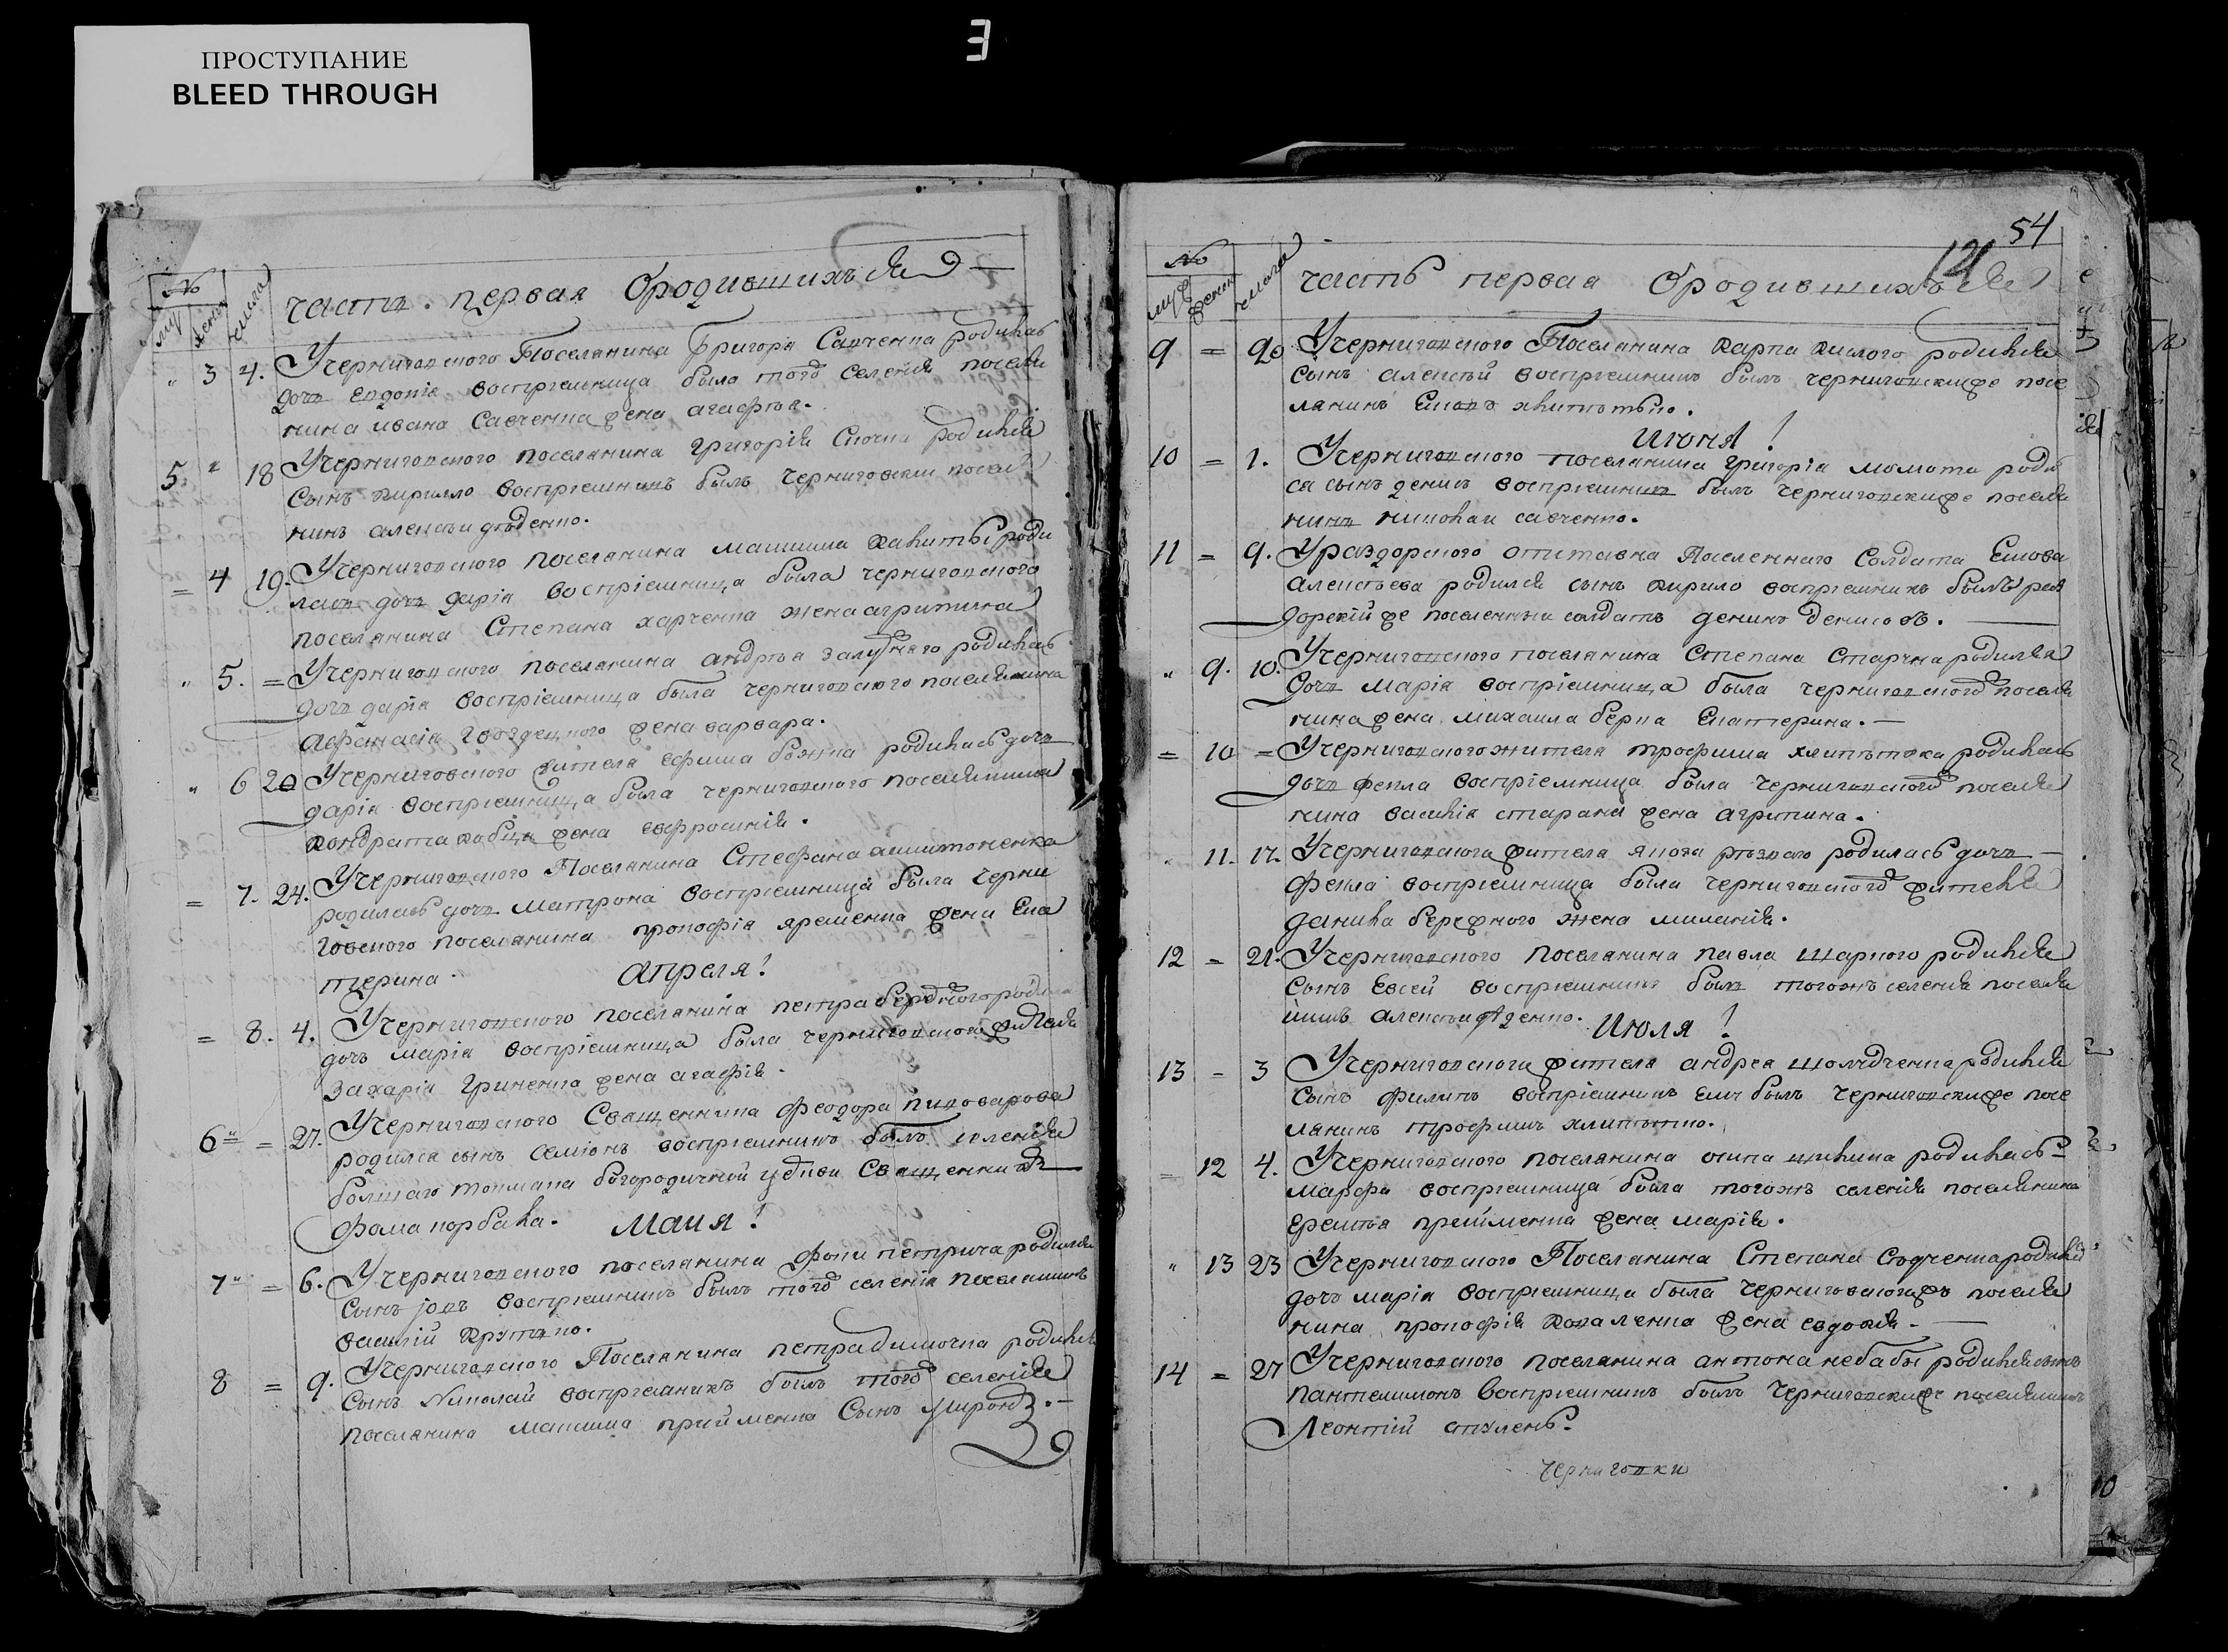 ПРОСТУПАНИЕ
BLEED THROUGH
Э
№
муж жена числа
часть. первая Ородившихъся
" 3 4. Учерниговского Поселанина Григорія Савченка родилась
дочь Евдокіа воспріемница была тогоже селенія посел
нина ивана Савченка жена агафѣя.
5. " 18 Учерниговского поселанина Григорія родился
Сынъ кирилло воспріемникъ былъ Черниговскій посел
нинъ алексѣи дѣденко.
= 4 19. Учерниговского поселанина максима Калиты роди
лась дочь дарія воспріемница была черниговского
поселанина Степана харченка жена агрипина
" 5. = Учерниговского поселанина андрѣа родилась
дочь дарія воспріемница была черниговского поселянина
Афанасія жена варвара.
" 6 20 Учерниговского жителя ефима родилась дочь
дарія воспріемница была черниговского поселянина
Кондрата жена евфросинія.
= 7. 24. Учерниговского Поселанина Стефана
родилась дочь Матрона воспріемница была черни
говского поселанина прокофія яременка жена Ека
терина. Апреля!
= 8. 4. Учерниговского поселанина петра бережного родила
дочь марія воспріемница была черниговского жителя
Захарія Гриненка жена агафія.
6 " = 27. Учерниговского Священника Феодора пивоварова
родился сынъ Семіонъ воспріемникъ былъ селенія
болшаго токмака богородичной церкви Священникъ
Фома корбала. Маия!
7 " = 6. Учерниговского поселанина фоки петрича родился
Сынъ іовъ воспріемникъ былъ тогоже селенія поселанинъ
василій
8 = 9. Учерниговского Поселанина петра димочка родился
Сынъ Николай воспріемникъ былъ тогоже селенія
поселанина максима прийменка Сынъ Миронъ.
54
121
№
муж жена числа
часть первая Ородившихъся
9 = 20 Учерниговского Поселанина Карпа Кислого родился
Сынъ алексѣй воспріемникъ былъ черниговскийже посе
лянинъ
Июня!
10 = 1. Учерниговского поселанина григорія момота роди
ся сынъ денисъ воспріемникъ былъ черниговскиже поселя
нинъ николай савченко.
11 = 9. Ураздорского Поселенного Солдата
Алексѣева родился сынъ кирило воспріемникъ былъ раз
дорскійже поселенный солдатъ денисъ денисовъ.
" 9. 10. Учерниговского поселанина Степана родилася
дочь Марія воспріемница была черниговскогоже поселя
нина жена михаила берка Екатерина.
= 10 = Учерниговского жителя трофима родилась
дочь фекла воспріемница была черниговскогоже поселя
нина василія старана жена агрипина.
" 11. 17. Учерниговского жителя якова рѣзного родилась дочь
Фекла воспріемница была черниговскогоже жителя
данила бережного жена миланія.
12 = 21. Учерниговского поселанина павла шарного родился
Сынъ Евсей воспріемникъ былъ тогожъ селенія поселя
нинъ алексѣи дѣденко. Июля!
13 = 3 Учерниговского жителя андрея родился
Сынъ филипъ воспріемникъ былъ черниговскиже посе
лянинъ трофимъ
= 12 4. Учерниговского поселанина осипа шикика родилась
марфа воспріемница была тогожъ селенія поселянина
еремѣя прейменка жена марія.
" 13 23 Учерниговского Поселанина Степана родилась
дочь марія воспріемница была Черниговскогожъ поселя
нина прокофія Коваленка жена евдокія.
14 = 27 Учерниговского поселянина антона небабы родился сынъ
пантелимонъ воспріемникъ былъ Черниговскиже поселянинъ
Леонтій
Черниговки
10